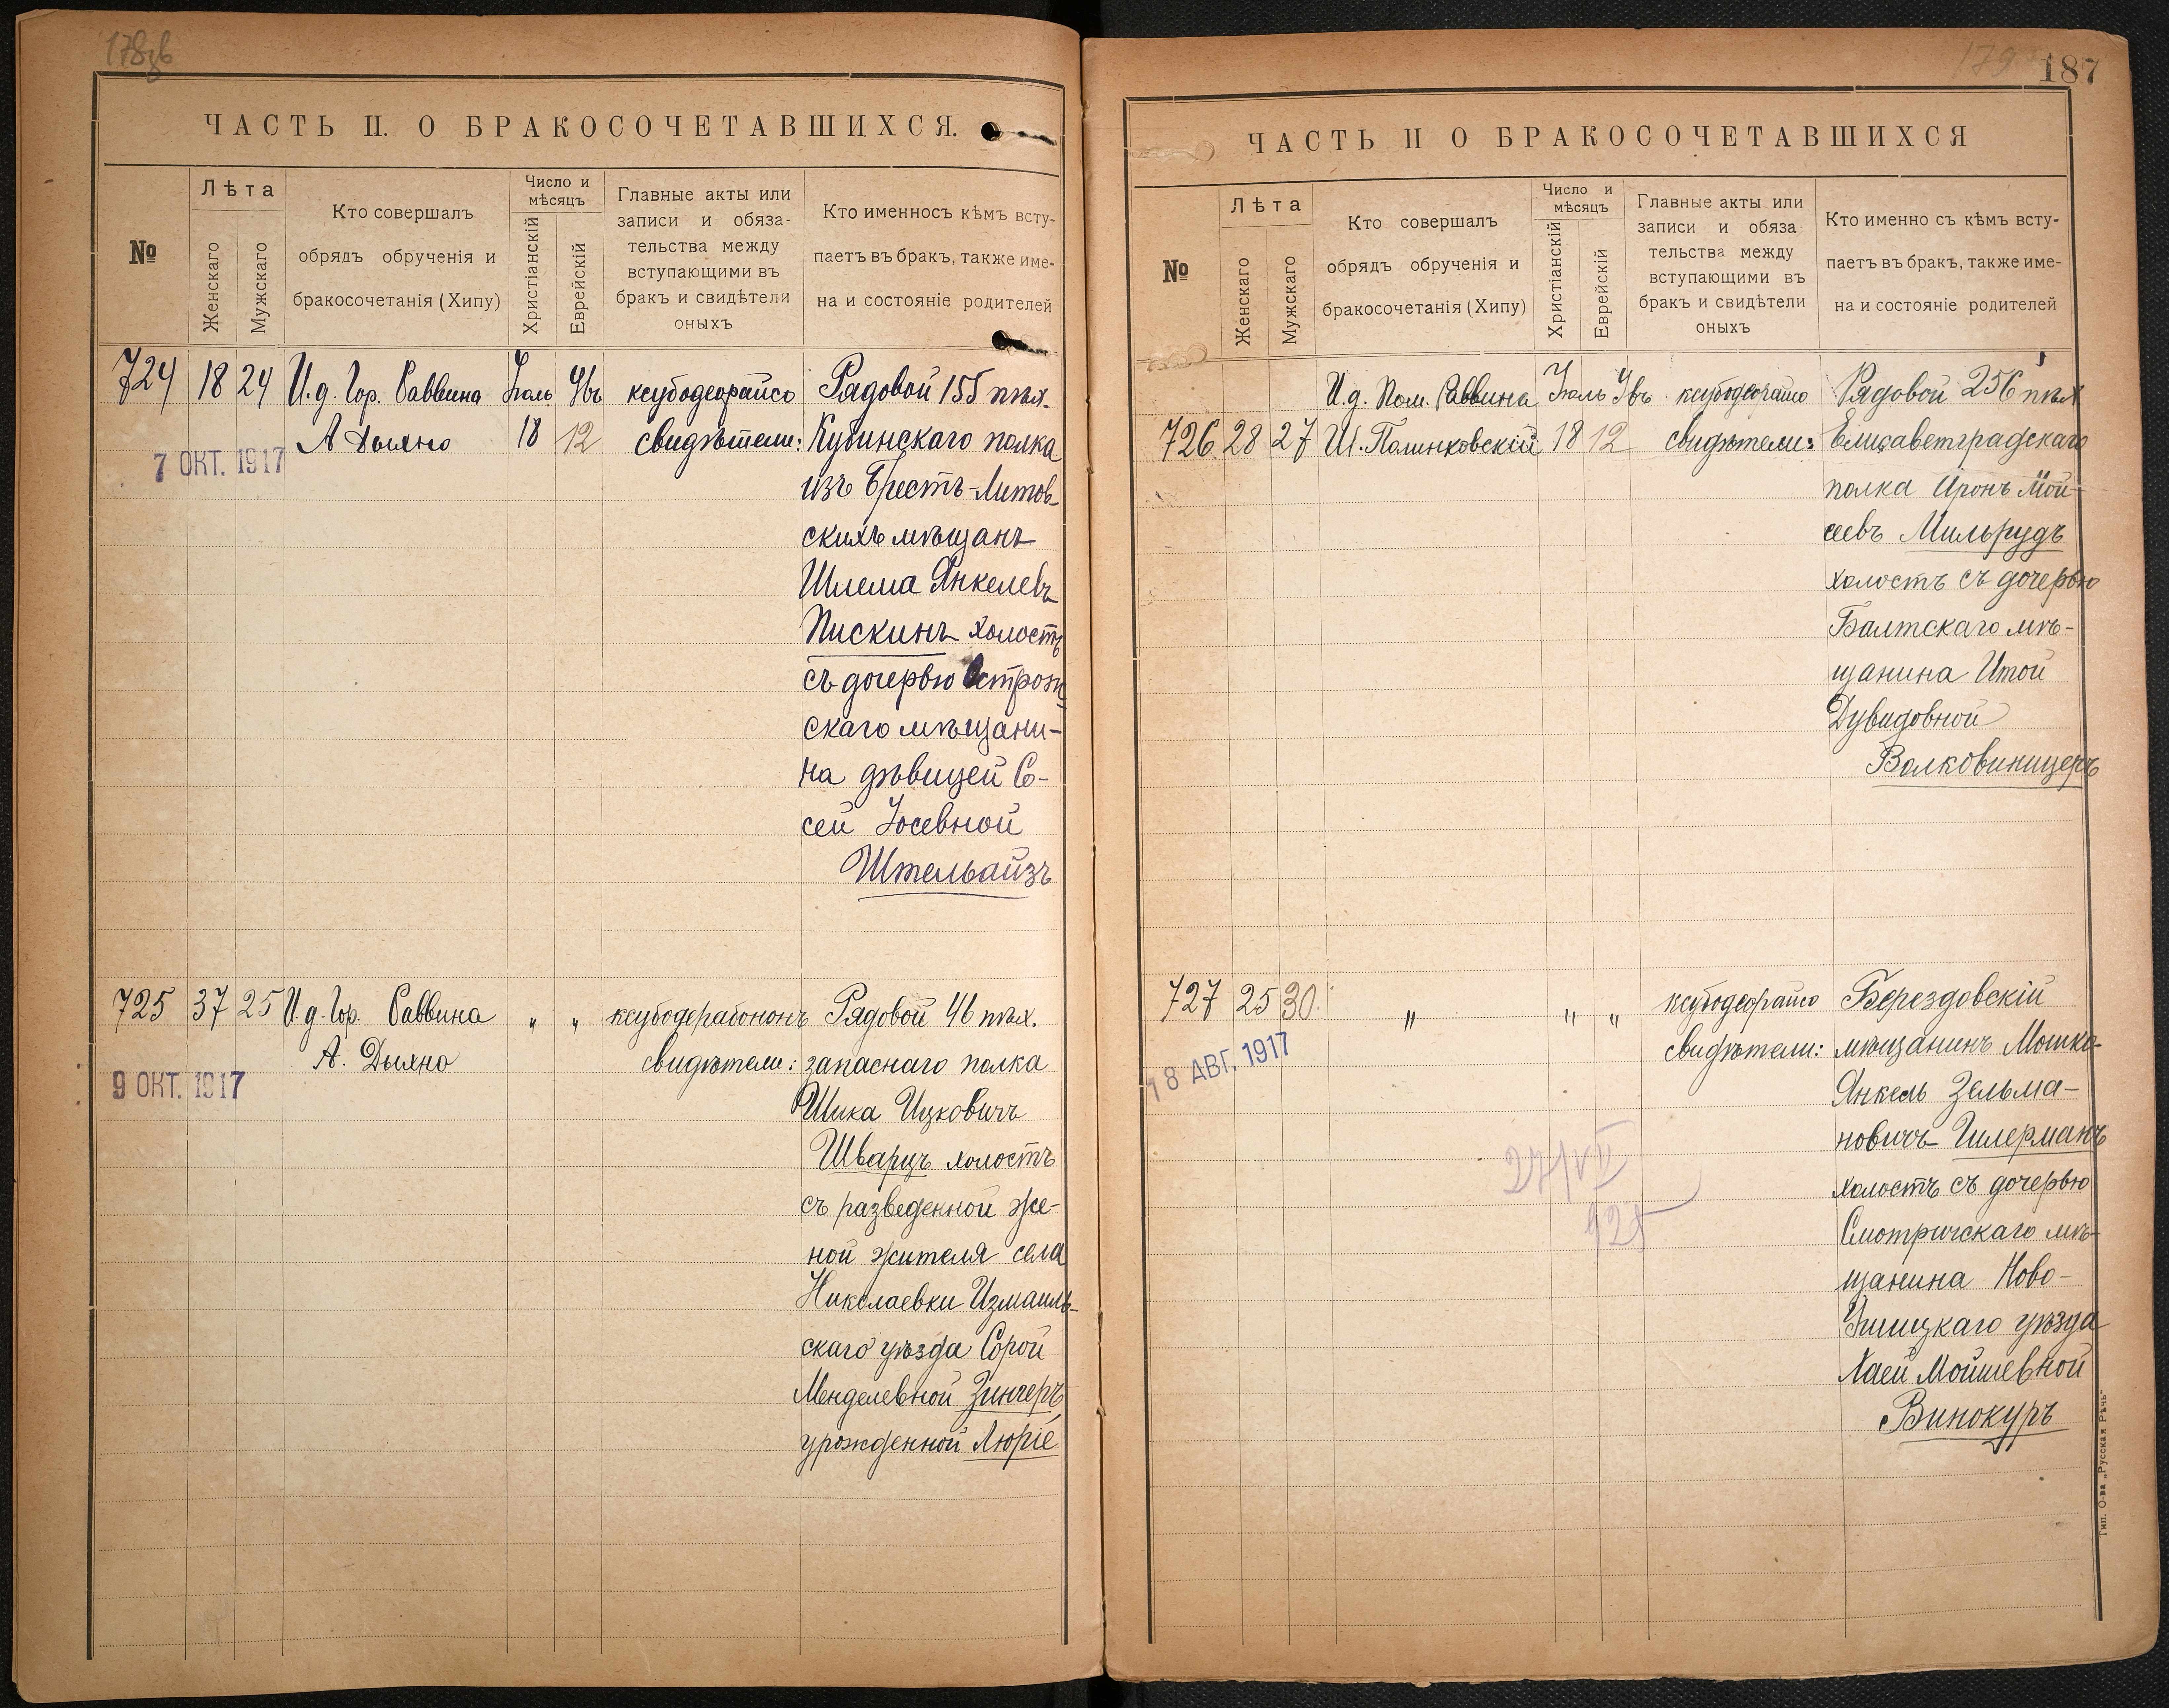 178зв
ЧАСТЬ II. О БРАКОСОЧЕТАВШИХСЯ.
№
Лѣта
Женскаго
Мужскаго
Кто совершалъ
обрядъ обрученія и
бракосочетанія (Хипу)
Число и
мѣсяцъ
Христіанскій
Еврейскій
Главные акты или
записи и обяза-
тельства между
вступающими въ
бракъ и свидѣтели
оныхъ
Кто именносъ кѣмъ всту-
паетъ въ бракъ, также име-
на и состояніе родителей
724 18 24 И.д. Гор. Раввина Іюль Увъ ксубодеорайсо Рядовой 155 пѣх.
А Дыхно 18 12 свидѣтели: Кубинскаго полка
7 ОКТ. 1917
изъ Брестъ-Литов-
скихъ мѣщанъ
Шлема Янкелевъ
Пискинъ холостъ
съ дочерью Острож
скаго мѣщани-
на дѣвицей Со-
сей Іосевной
Штельвайзъ
725 37 25 И.д. Гор. Раввина " " ксубодерабононъ Рядовой 46 пѣх.
А. Дыхно свидѣтели: запаснаго полка
9 ОКТ. 1917
Шика Ицковичъ
Шварцъ холостъ
съ разведенной же-
ной жителя села
Николаевки Измаиль-
скаго уѣзда Сорой
Менделевной Зингеръ
урожденной Люріе
179
187
ЧАСТЬ II О БРАКОСОЧЕТАВШИХСЯ
№
Лѣта
Женскаго
Мужскаго
Кто совершалъ
обрядъ обрученія и
бракосочетанія (Хипу)
Число и
мѣсяцъ
Христіанскій
Еврейскій
Главные акты или
записи и обяза
тельства между
вступающими въ
бракъ и свидѣтели
оныхъ
Кто именно съ кѣмъ всту-
паетъ въ бракъ, также име-
на и состояніе родителей
И.д. Пом. Раввина Іюль Увъ ксубодеорайсо Рядовой 256 пѣх
726 28 27 Ш. Полинковскій 18 12 свидѣтели: Елисаветградскаго
полка Аронъ Мой-
сеевъ Мильрудъ
холостъ съ дочерью
Балтскаго мѣ-
щанина Итой
Дувидовной
Волковиницеръ
727 25 30 " " " ксубодеорайсо Берездовскій
свидѣтели: мѣщанинъ Мошко-
18 АВГ. 1917
Янкель Зельма-
новичъ Гилерманъ
27/VII
925
холостъ съ дочерью
Смотричскаго мѣ-
щанина Ново-
Ушицкаго уѣзда
Хаей Мойшевной
Винокуръ
Тип. О-ва „Русская Рѣчь"